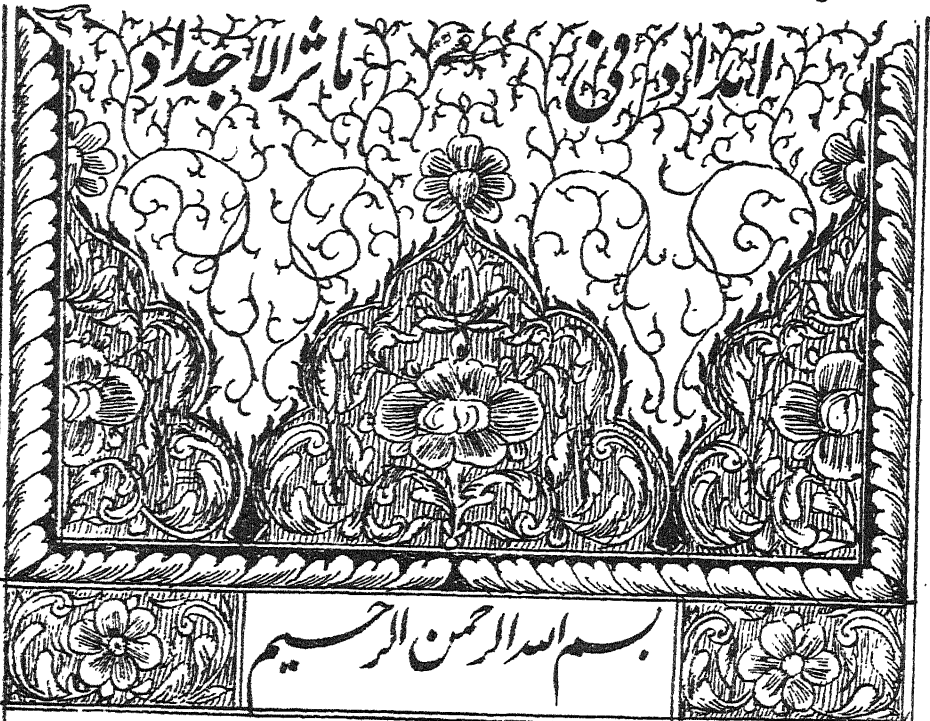 امداد فی ماثر الاجداد
بسم الله الرحمن الرحیم